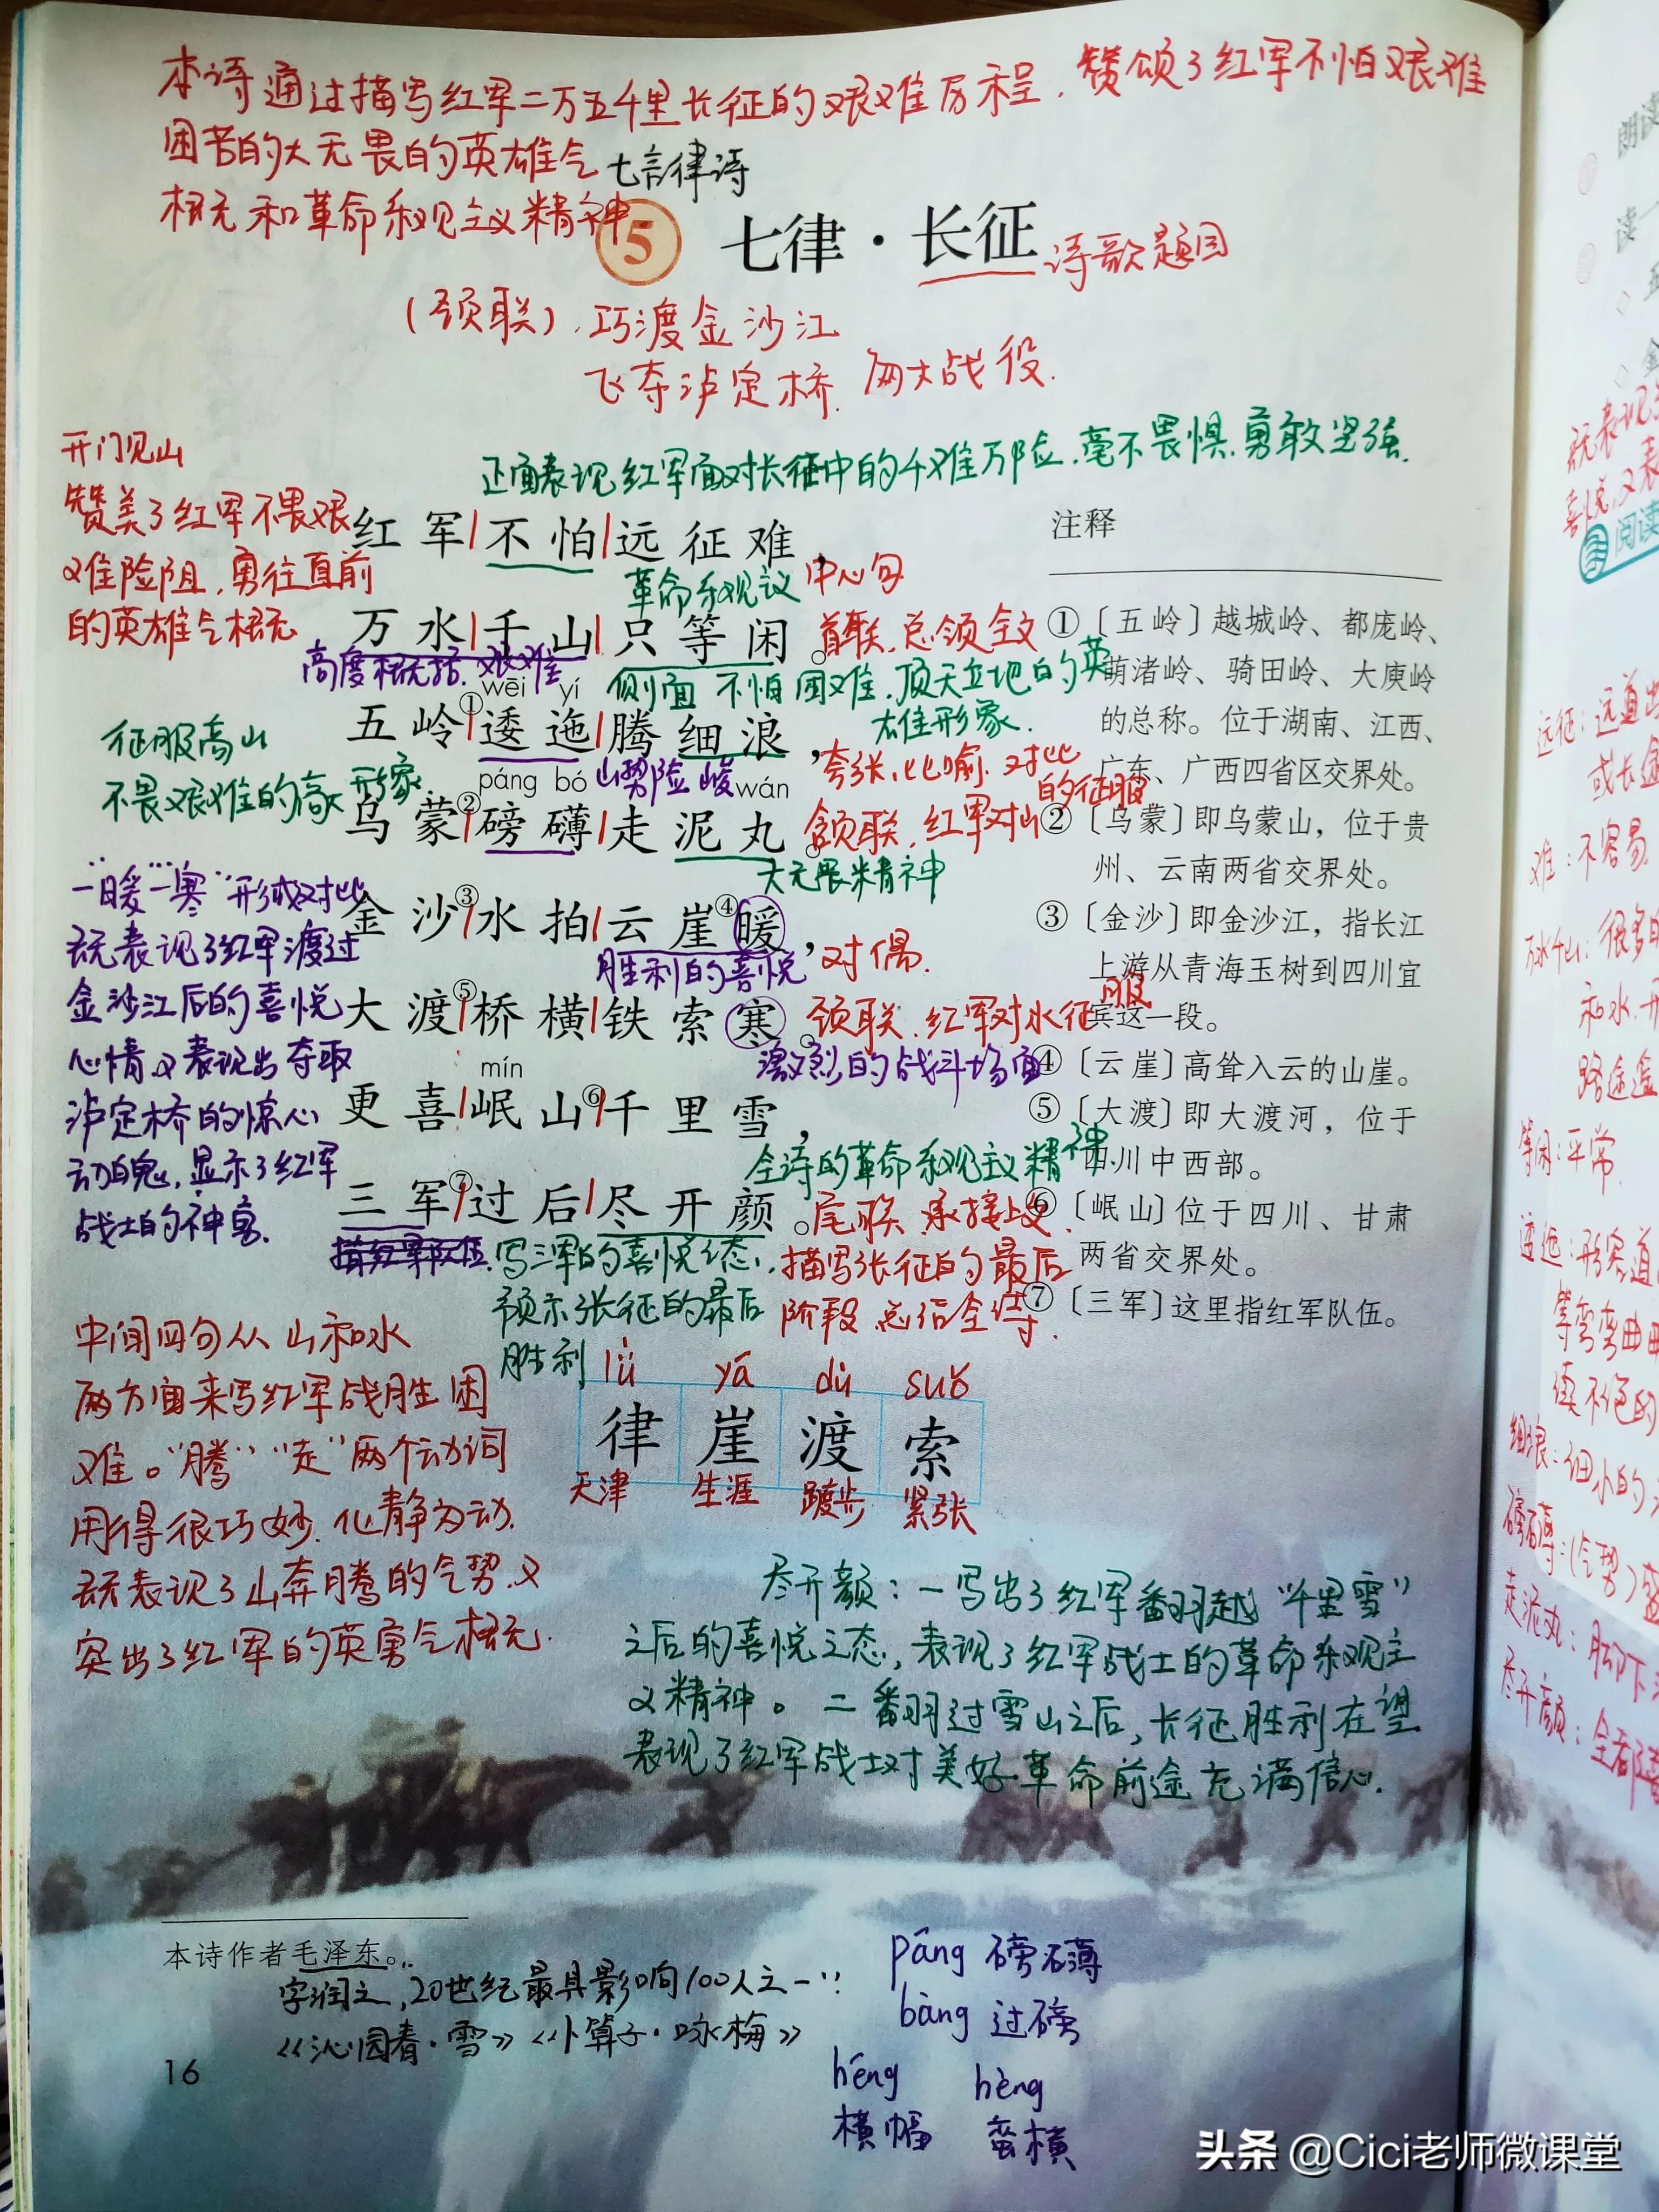 本诗通过描写红军二万五千里长征的艰难历程，赞颂了红军不怕艰难
困苦的大无畏的英雄气
概和革命乐观主义精神
七言律诗
5 七律·长征
诗歌题目
(颈联)，巧渡金沙江
飞夺泸定桥 两大战役.
开门见山
赞美了红军不畏艰
难险阻，勇往直前
的英雄气概
正面表现红军面对长征中的千难万险.毫不畏惧.勇敢坚强.
红军不怕远征难，
革命乐观议 中心句
万水千山只等闲。
首联.总领全文
高度概括.艰难
侧面 不怕困难.顶天立地的英
雄形象.
征服高山
不畏艰难的高大形象.
wēi yí
五岭①逶迤腾细浪，
山势险峻
夸张.比喻.对比
páng bó wán
乌蒙②磅礴走泥丸。
颔联.红军对山
的征服
大无畏精神
金沙③水拍云崖④暖，
胜利的喜悦
对偶.
大渡⑤桥横铁索寒。
颈联.红军对水征
服
激烈的战斗场面
“暖”“寒”形成对比
既表现了红军渡过
金沙江后的喜悦
心情又表现出夺取
泸定桥的惊心
动魄，显示了红军
战士的神勇.
mín
更喜岷山⑥千里雪，
全诗的革命乐观主义精神
三军⑦过后尽开颜。
尾联 承接上文.
描写长征的最后
阶段.总结全诗.
指红军队伍.
写三军的喜悦之态，
预示长征的最后
胜利
注释
①〔五岭〕越城岭、都庞岭、
萌渚岭、骑田岭、大庾岭
的总称。位于湖南、江西、
广东、广西四省区交界处。
②〔乌蒙〕即乌蒙山，位于贵
州、云南两省交界处。
③〔金沙〕即金沙江，指长江
上游从青海玉树到四川宜
宾这一段。
④〔云崖〕高耸入云的山崖。
⑤〔大渡〕即大渡河，位于
四川中西部。
⑥〔岷山〕位于四川、甘肃
两省交界处。
⑦〔三军〕这里指红军队伍。
中间四句从山和水
两方面来写红军战胜困
难。“腾”“走”两个动词
用得很巧妙.化静为动.
既表现了山奔腾的气势.又
突出了红军的英勇气概.
lǜ yá dù suǒ
律 崖 渡 索
天津 生涯 踱步 紧张
尽开颜：一写出了红军翻越“千里雪”
之后的喜悦之态，表现了红军战士的革命乐观主
义精神。二翻过雪山之后，长征胜利在望
表现了红军战士对美好革命前途充满信心.
本诗作者毛泽东。
字润之，20世纪最具影响100人之一
《沁园春·雪》《卜算子·咏梅》
páng 磅礴
bàng 过磅
héng hèng
横幅 蛮横
16
朗读
读一
阅读
既表现
喜悦，又表
远征：远道
或长途
难：不容易
万水千山：很多的
和水.
路途遥
等闲：平常
逶迤：形容道
等弯弯曲曲
绵不绝的
细浪：细小的
磅礴：(气势)盛
走泥丸：脚下
尽开颜：全都
头条 @Cici老师微课堂